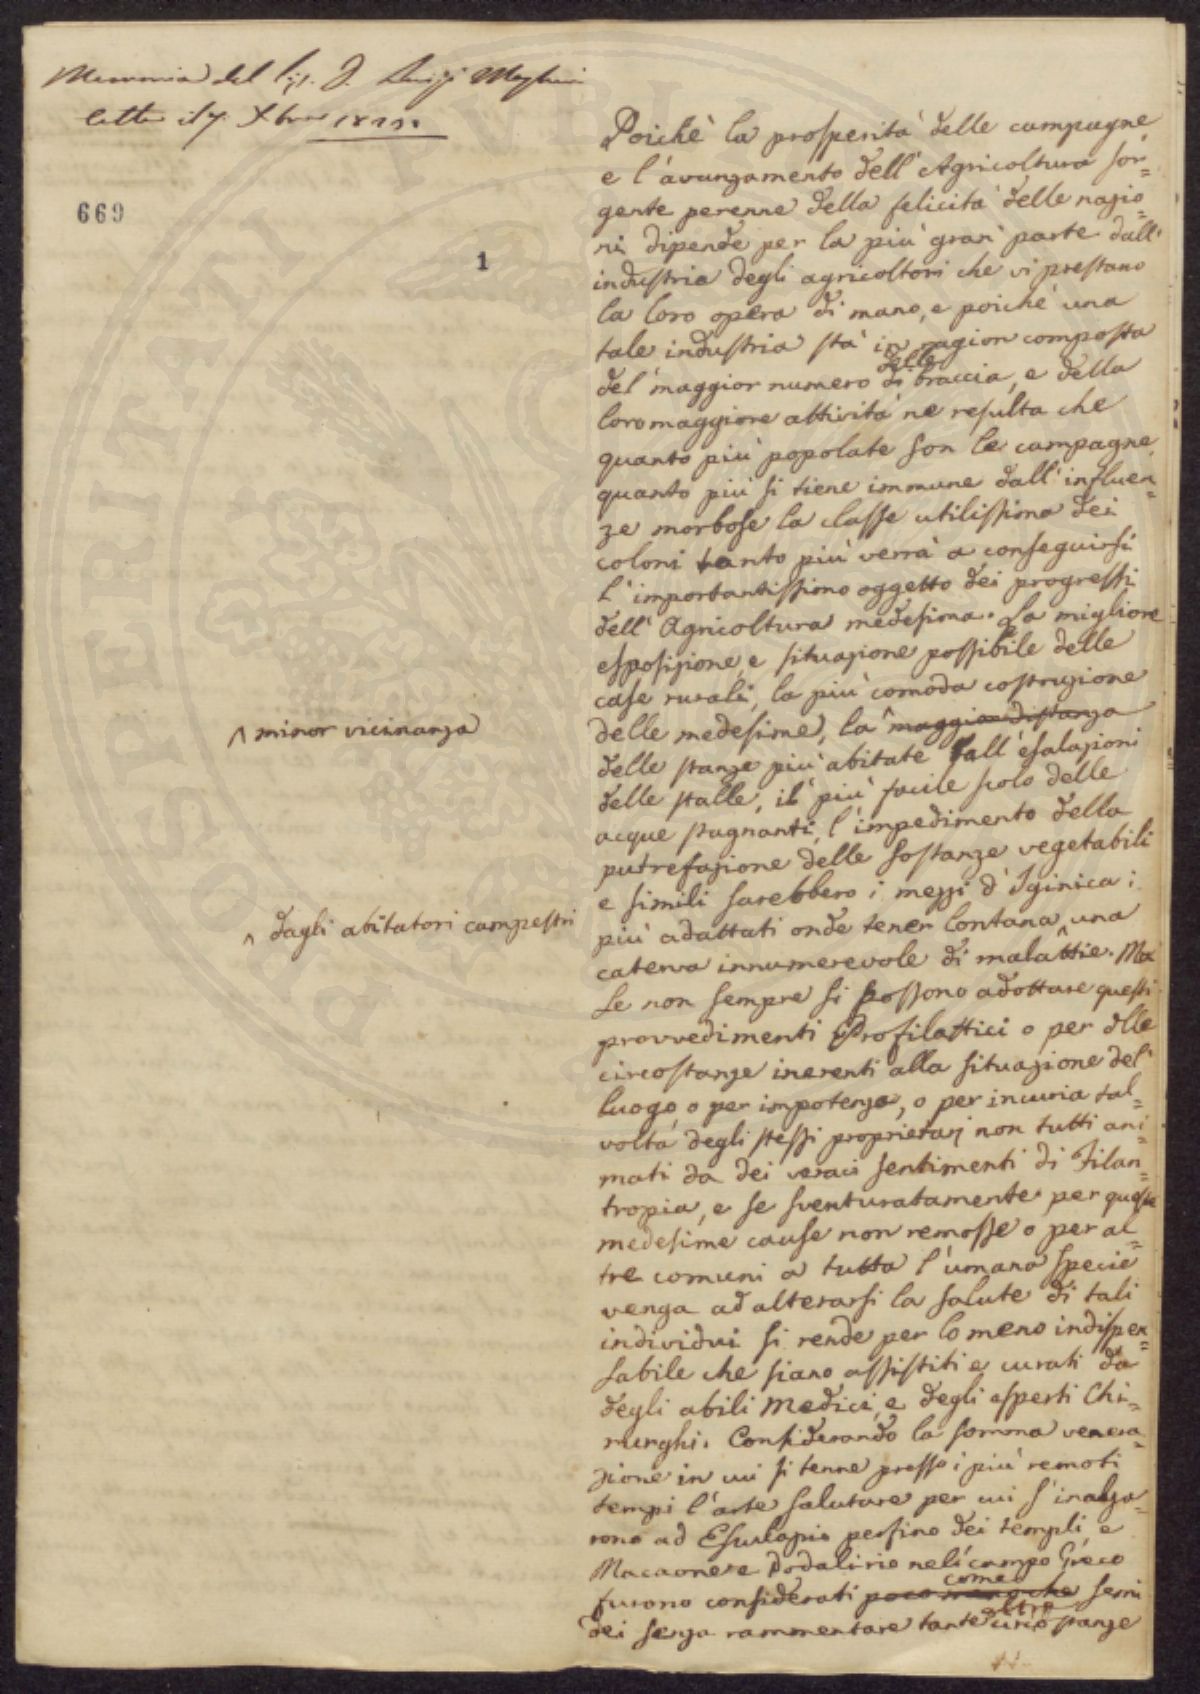 Memoria del Sig. D. Luigi
letta il 7. Xbre
669
1
Poichè la prosperità delle campagne,
e l'avanzamento dell'Agricoltura sor=
gente perenne della felicità delle nazio=
ni dipende per la più gran parte dall'
industria degli agricoltori che vi prestano
la loro opera di mano, e poichè una
tale industria stà in ragion composta
del maggior numero di delle braccia, e della
loro maggiore attività ne resulta che
quanto più popolate son le campagne,
quanto più si tiene immune dall'influen=
ze morbose la classe utilissima dei
coloni tanto più verrà a conseguirsi
l'importantissimo oggetto dei progressi
dell'Agricoltura medesima. La migliore
esposizione, e situazione possibile delle
case rurali, la più comoda costruzione
delle medesime, la ^ maggior distanza
^ minor vicinanza
delle stanze più abitate dall'esalazioni
delle stalle, il più facile scolo delle
acque stagnanti, l'impedimento della
putrefazione delle sostanze vegetabili
e simili sarebbero i mezzi d'Iginica i
più adattati onde tener lontana ^ una
^ dagli abitatori campestri
caterva innumerevole di malattie. Ma
se non sempre si possono adottare questi
provvedimenti Profilattici o per dlle
circostanze inerenti alla situazione del
luogo, o per impotenza, o per incuria tal=
volta degli stessi proprietarj non tutti ani=
mati da dei veraci sentimenti di Filan=
tropia, e se sventuratamente per queste
medesime cause non remosse o per al=
tre comuni a tutta l'umana specie
venga ad alterarsi la salute di tali
individui si rende per lo meno indispen=
sabile che siano assistiti e curati da
degli abili Medici, e degli esperti Chi=
rurghi. Considerando la somma venera=
zione in cui si tenne presso i più remoti
tempi l'arte salutare per cui s'inalza=
rono ad Esculapio persino dei templi e
Macaone e Podalirio nel campo Greco
furono considerati poco meno che come semi
dei senza rammentare tante altre circostanze